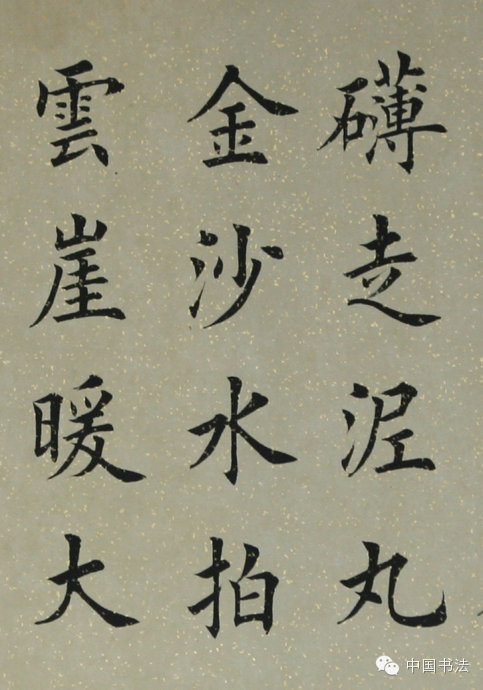 礴走泥丸
金沙水拍
雲崖暖大
中国书法